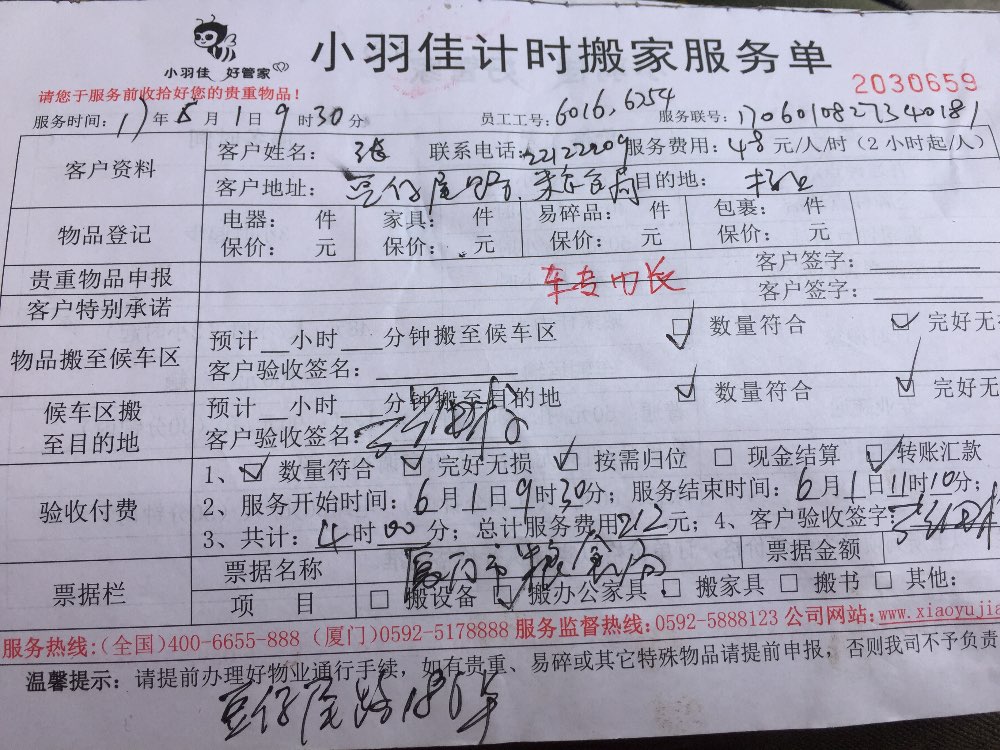 小羽佳 好管家
小羽佳计时搬家服务单
2030659
请您于服务前收拾好您的贵重物品!
服务时间: 17年 月1日9时30分 员工工号: 6016, 6254 服务联号: 1706010827340181
客户资料 客户姓名: 张 联系电话: 2212209 服务费用: 48元/人/时(2小时起/人)
客户地址: 豆仔尾路 粮食局 目的地:
物品登记 电器: 件 家具: 件 易碎品: 件 包裹: 件
保价: 元 保价: 元 保价: 元 保价: 元
贵重物品申报 客户签字:
客户特别承诺 客户签字:
物品搬至候车区 预计 小时 分钟搬至候车区 数量符合 完好无
客户验收签名:
候车区搬至目的地 预计 小时 分钟搬至目的地 数量符合 完好无
客户验收签名:
验收付费 1、 数量符合 完好无损 按需归位 现金结算 转账汇款
2、服务开始时间: 6月1日9时30分; 服务结束时间: 6月1日11时10分;
3、共计: 4时00分; 总计服务费用212元; 4、客户验收签字:
票据栏 票据名称 厦门市粮食局 票据金额
项目 搬设备 搬办公家具 搬家具 搬书 其他:
服务热线:(全国)400-6655-888 (厦门)0592-5178888 服务监督热线:0592-5888123 公司网站:www.xiaoyujia
温馨提示: 请提前办理好物业通行手续, 如有贵重、易碎或其它特殊物品请提前申报, 否则我司不予负责
豆仔尾路